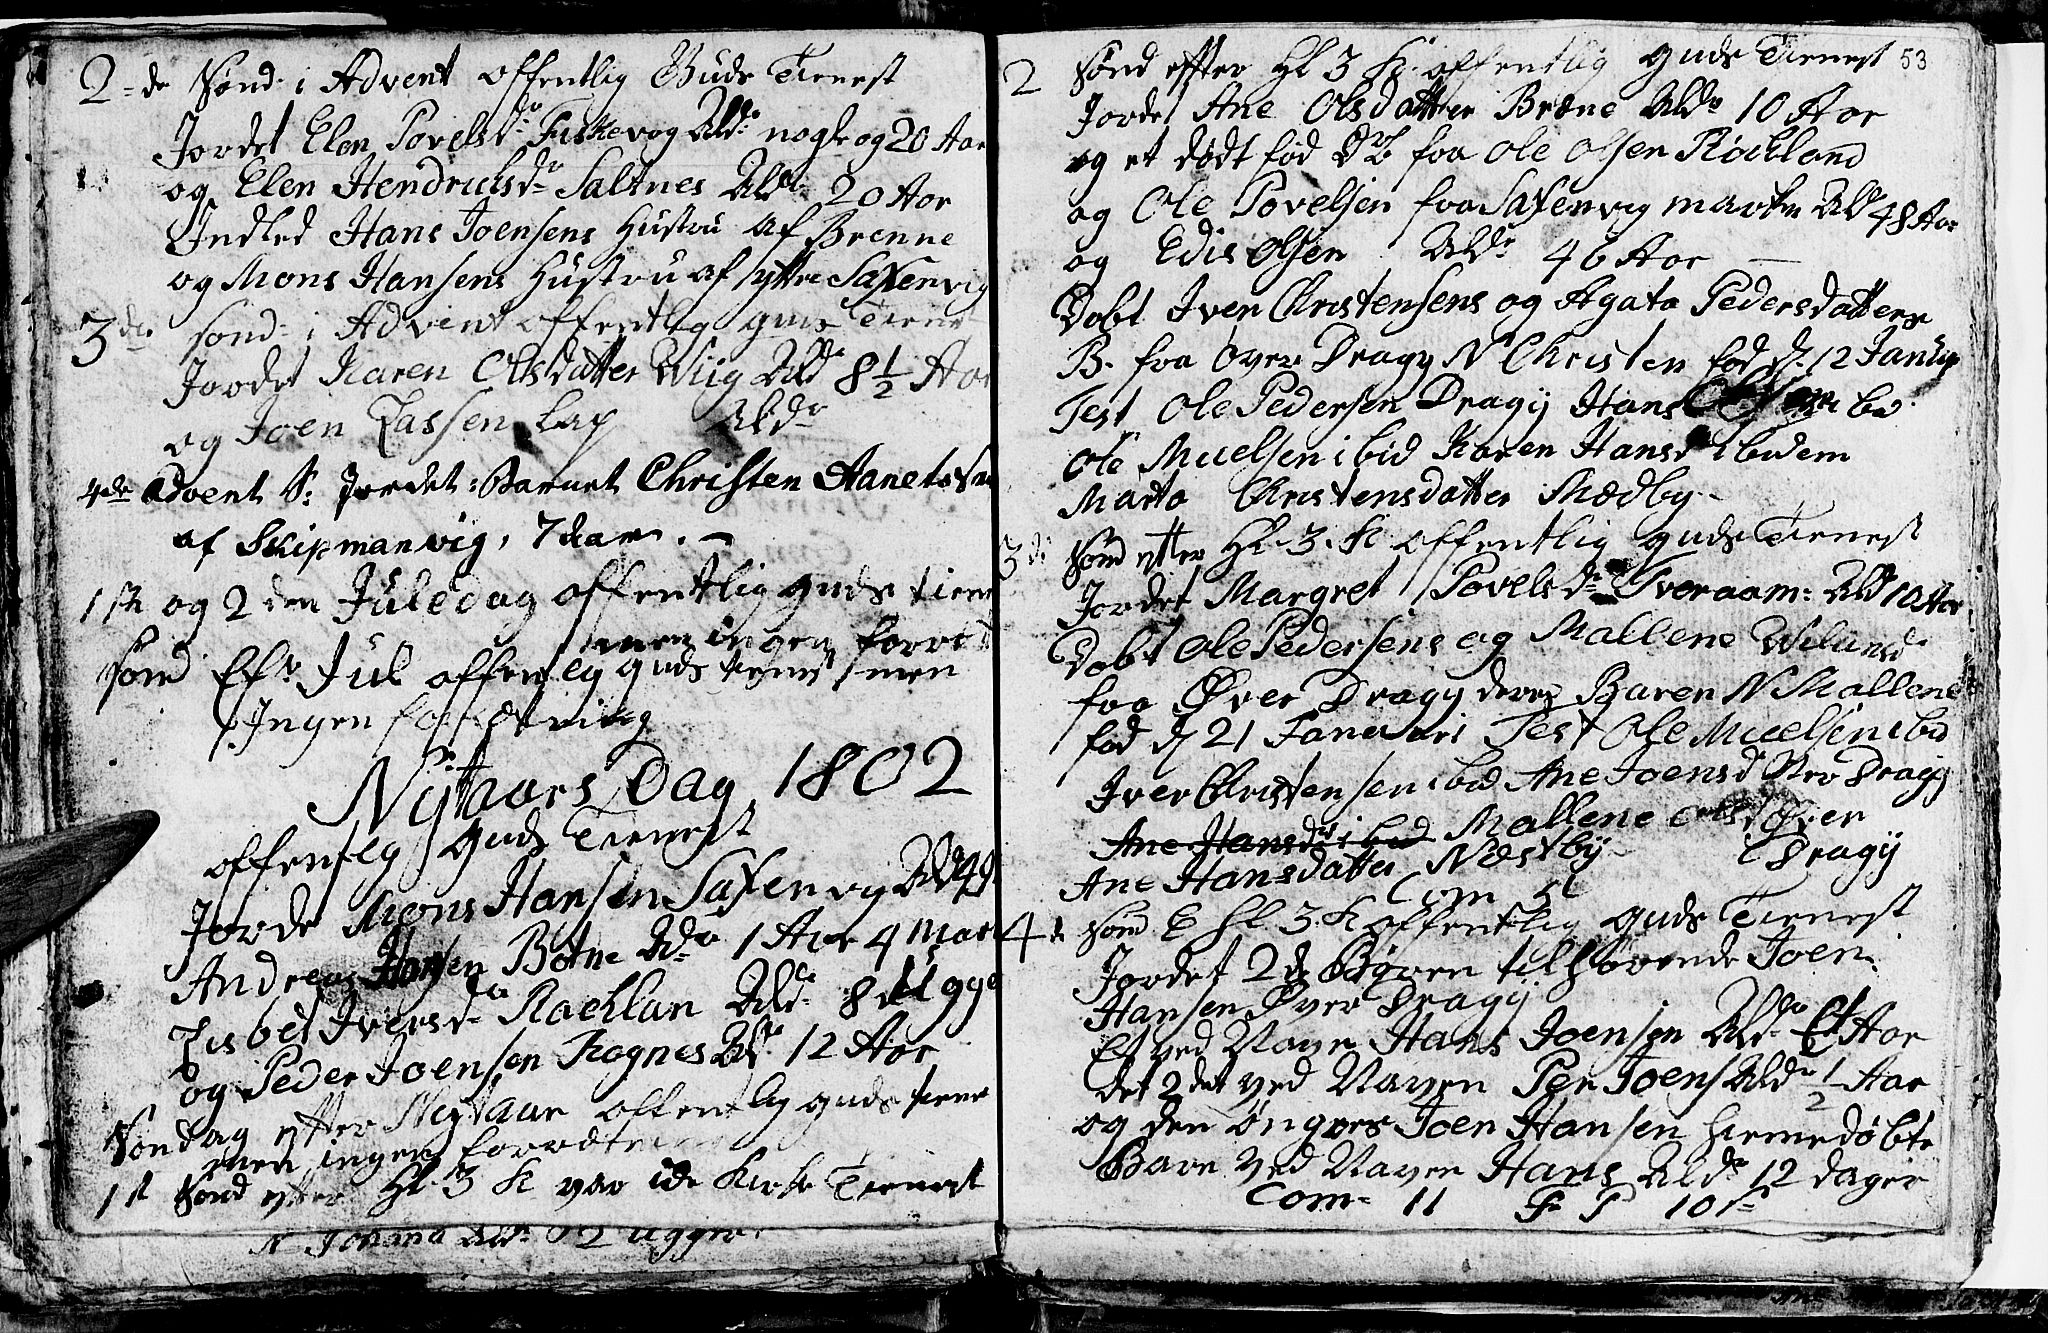 2-de Sønd: i Advent offentlig Guds Tienest
Jordet Elen Povelsdr Fuskevog Aldr nogle og 20 Aar
og Elen Hendrichsdr Saltnes Aldr 20 Aar
Indled Hans Joensens Hustru af Brenne
og Mons Hansens Hustru af yttre Saxenvig
3de sond: i Advent offentlig guds Tienest
Jordet Karen Olsdatter Wiig Aldr 8 1/2 Aar
og Joen Lassen Lap Aldr
4de Advent S: Jordet: Barnet Christen Aanets
af Skipmanvig, 7 Aar. -
1ste og 2den Juledag offentlig guds tienest
men ingen forret
Sønd Eftr Jul offenlig guds tienst men
Ingen forretning
Nytaars Dag 1802
offenlig guds Tienest
Jorde Mons Hansen Saxenvig Aldr 49
Andreas Hansen Botne Aldr 1 Aar 4 Maan
Lisbet Iversdr Rachlan Aldr 8 Ugger
og Peder Joensen Rognes Aldr 12 Aar
Søndag efter Nytaar offentlig guds tiene
men ingen forretn
1st Sønd efter Hl 3 K var ide Kirke Tienest
N Johana Aldr 2 ugger.
53
2 Sønd effter Hl 3 K: offentlig guds Tienest
Jordet Ane Olsdatter Bræne Aldr 10 Aar
og et dødt fød DB fra Ole Olsen Rochland
og Ole Povelsen fra Saxenvig marken Ald 48 Aar
og Edis Olsen Aldr 46 Aar -
Døbt Iver Christensens og Agata Pedersdatters
B. fra Øver Dragy N Christen fød d. 12 Januar
Test Ole Pedersen Dragij Hans ibid
Ole Muelsen ibid Karen Hansd ibidem
Marta Christensdatter Nedby -
3de Sønd efter Hl. 3. K offentlig guds Tienest
Jordet Margret Povelsdr Tveraam: Ald 10 Aar
Døbt Ole Pedersens og Mallene
fra Øver Dragy deres Baren N Mallene
fød d 21 Januari Test Ole Muelsen ibid
Iver Christensen ibid Ane Joensd Dragij
Ane Hansdr ibid Mallene Olsdr Øver
Ane Hansdatter Næstby - Dragij
Com 51
4de Sønd E Hl 3. K offentlig guds Tienest
Jordet 2de Børen tilhørende Joen
Hansen Øver Dragij
Et ved Navn Hans Joensen Aldr Et Aar
det 2det ved Naven Per Joens Aldr 1/2 Aar
og den øngres Joen Hansen hiemedøbte
Barn ved Naven Hans Aldr 12 dager
Com- 11